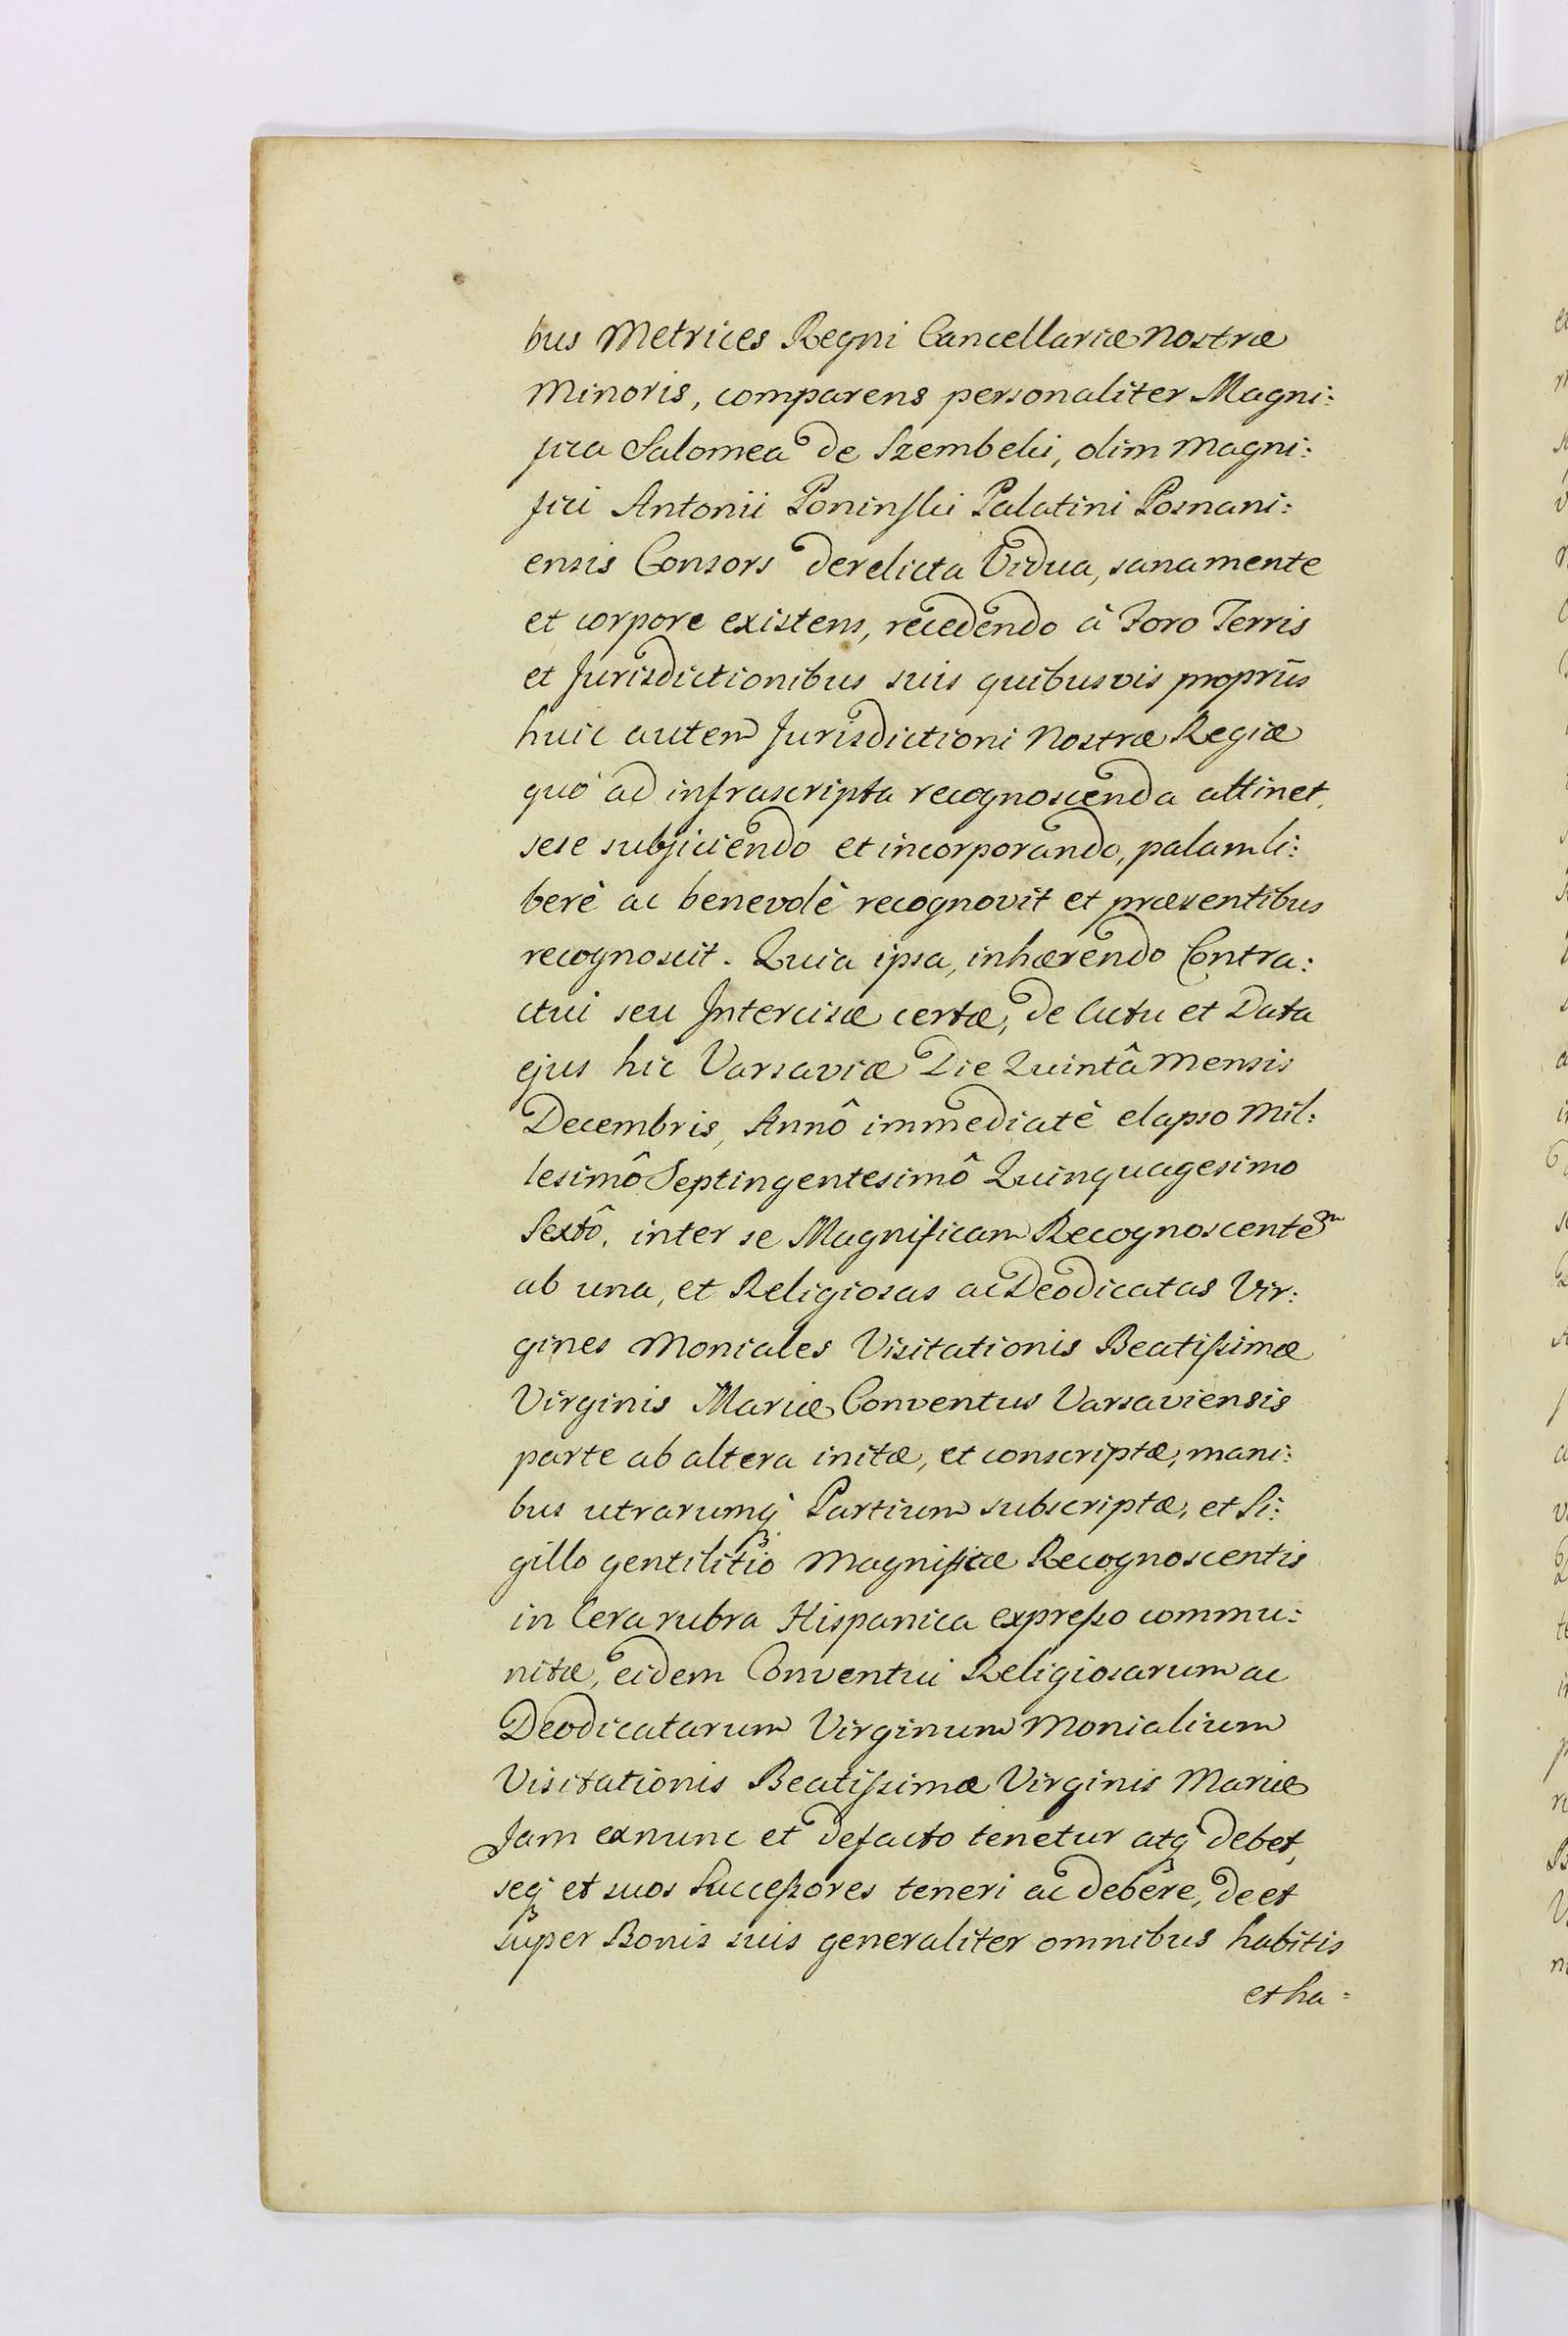 bus Metrices Regni Cancellariæ Nostræ
Minoris, comparens personaliter Magni:
fica Salomea de Szembeki, olim Magni:
fici Antonii Poninski Palatini Posnani:
ensis Consors derelicta Vidua, sana mente
et corpore existens, recedendo à Foro Terris
et Jurisdictionibus suis quibusvis propriis
huic autem Jurisdictioni Nostræ Regiæ
quo ad infrascripta recognoscenda attinet,
sese subjiciendo et incorporando, palam li:
berè ac benevolè recognovit et præsentibus
recognoscit. Quia ipsa, inhærendo Contra:
ctui seu Intercisæ certæ, de Actu et Data
ejus hic Varsaviæ Die Quintâ Mensis
Decembris, Annô immediatè elapso Mil:
lesimô Septingentesimô Quinquagesimo
Sextô, inter se Magnificam Recognoscentem
ab una, et Religiosas ac Deodicatas Vir:
gines Moniales Visitationis Beatißimæ
Virginis Mariæ Conventus Varsaviensis
parte ab altera initæ, et conscriptæ, mani:
bus utrarumq Partium subscriptæ, et Si:
gillo gentilitio Magnificæ Recognoscentis
in Cera rubra Hispanica expreßo commu:
nitæ, eidem Conventui Religiosarum ac
Deodicatarum Virginum Monialium
Visitationis Beatißimæ Virginis Mariæ
Jam exnunc et defacto tenetur atq debet,
seq et suos Succeßores teneri ac debere, de et
super Bonis suis generaliter omnibus habitis
et ha=